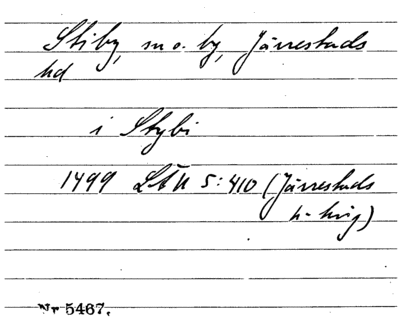 Stiby, sn o. by, Järrestads
hd
i Stybi
1499 LÄU 5:410 (Järrestads
h-ting)
Nr 5467.